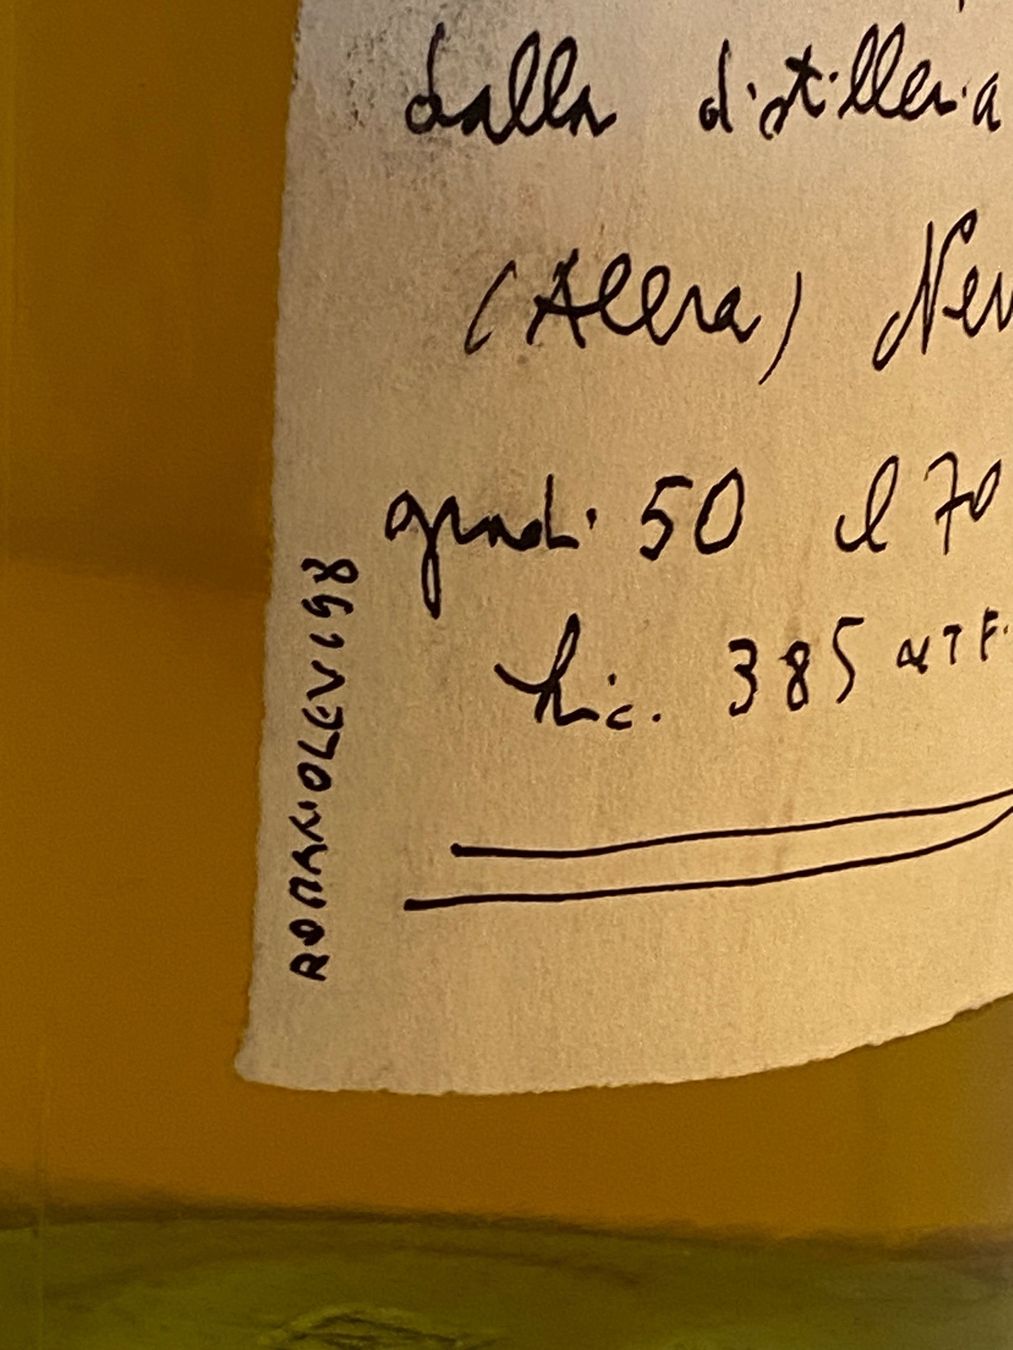 dalla distilleria
(Allera) Nev
gradi 50 cl 70
Lic. 385 UTF.
ROMANO LEVI 98